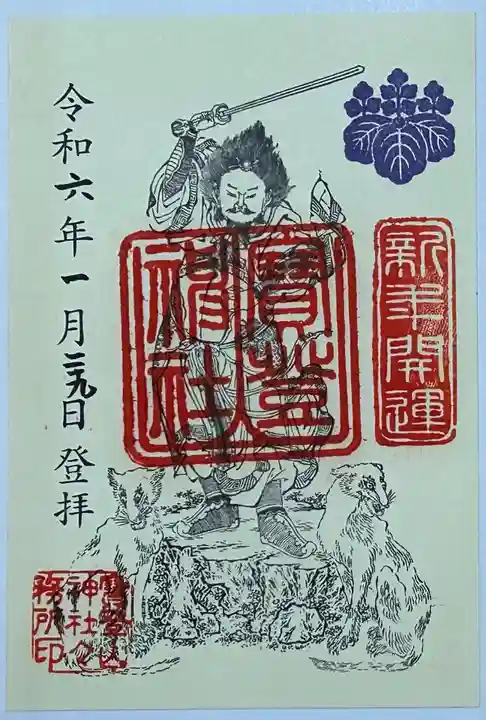 新年開運
寳登山
神社
令和六年一月二九日登拝
寳登山
神社之
務所印